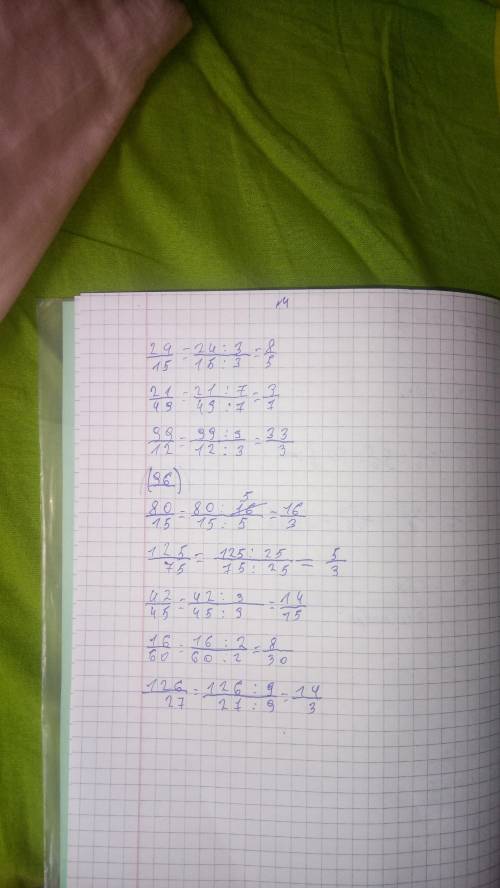 м
24/15 = 24:3/15:3 = 8/5
21/49 = 21:7/49:7 = 3/7
99/12 = 99:3/12:3 = 33/3
(96)
80/15 = 80:5/15:5 = 16/3
125/75 = 125:25/75:25 = 5/3
42/45 = 42:3/45:3 = 14/15
16/60 = 16:2/60:2 = 8/30
126/27 = 126:9/27:9 = 14/3